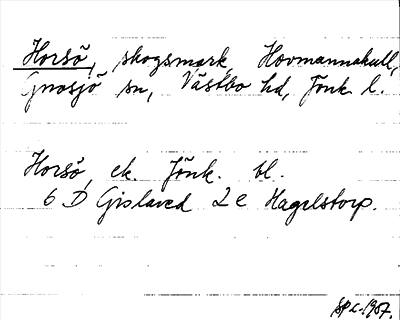 Horsö, skogsmark, Hovmannakull,
Gnosjö sn, Västbo hd, Jönk l.
Horsö, ek. Jönk. bl.
6 D Gislaved 2 e Hagelstorp.
1967.